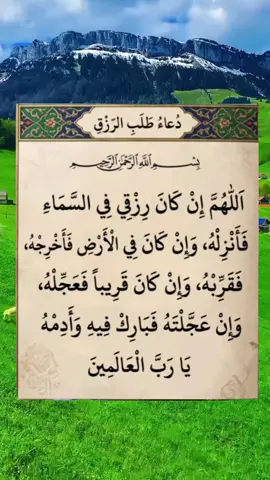 دُعَاءُ طَلَبِ الرِّزْقِ
بِسْمِ اللَّهِ الرَّحْمَنِ الرَّحِيمِ
اَللّٰهُمَّ إِنْ كَانَ رِزْقِي فِي السَّمَاءِ
فَأَنْزِلْهُ، وَإِنْ كَانَ فِي الْأَرْضِ فَأَخْرِجْهُ،
فَقَرِّبْهُ، وَإِنْ كَانَ قَرِيباً فَعَجِّلْهُ،
وَإِنْ عَجَّلْتَهُ فَبَارِكْ فِيهِ وَأَدِمْهُ
يَا رَبَّ الْعَالَمِينَ